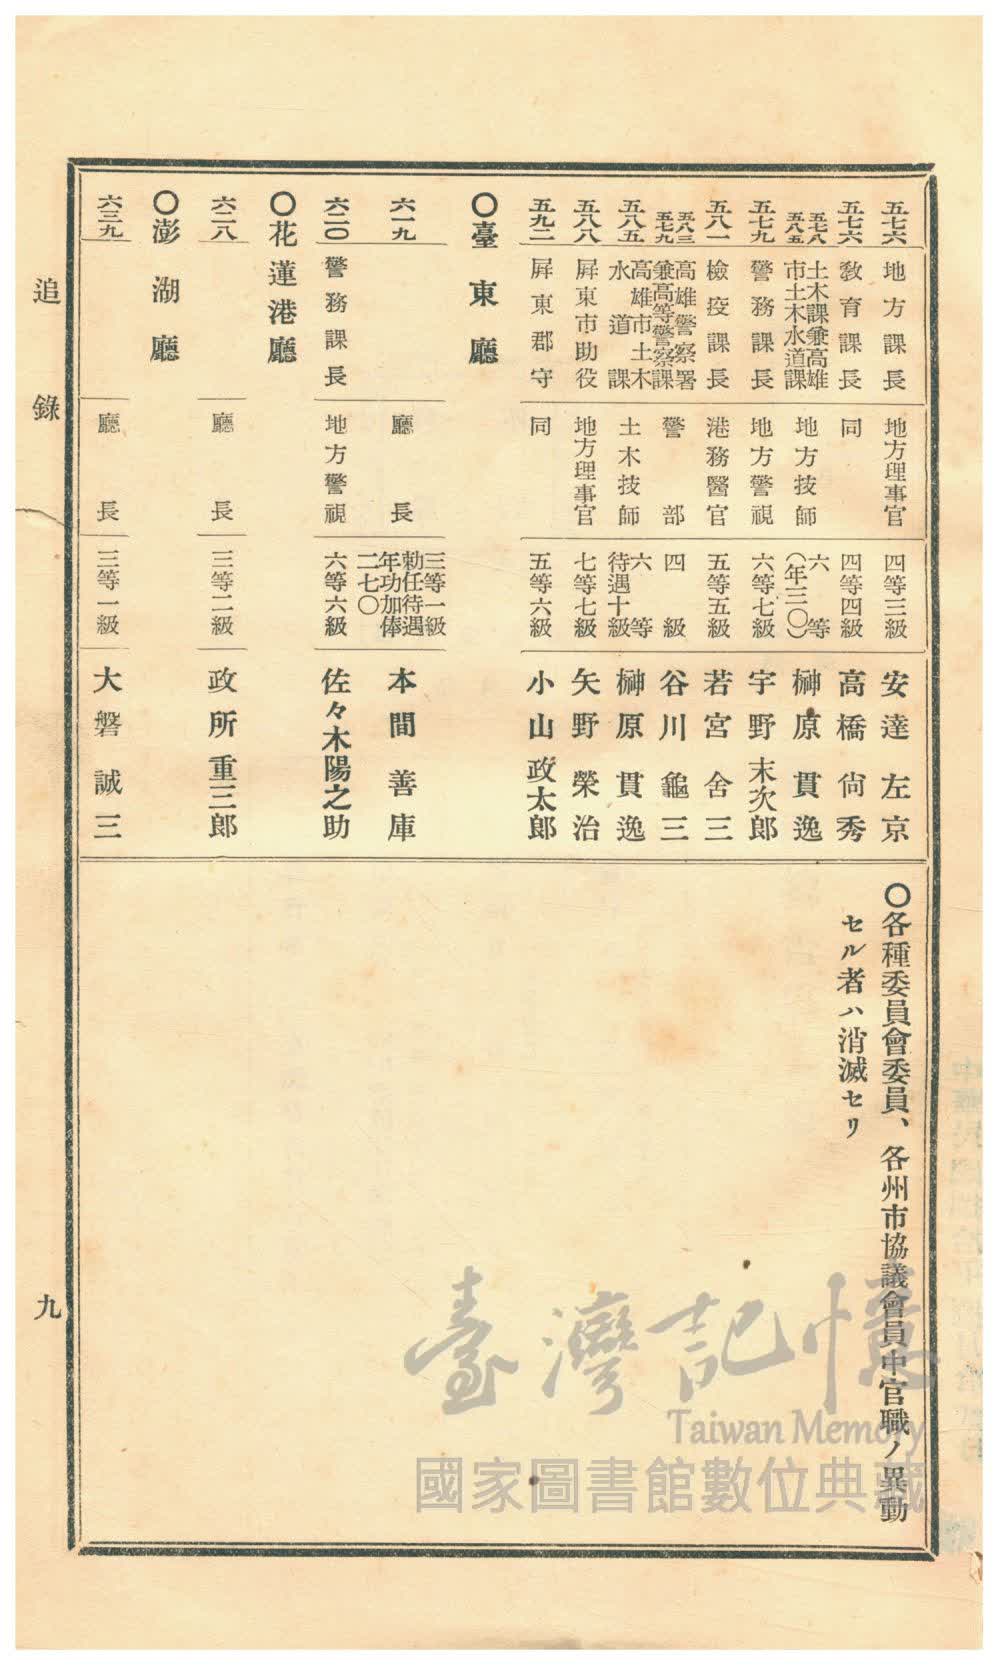 五七六 地方課長 地方理事官 四等三級 安達左京
五七六 教育課長 同 四等四級 高橋尙秀
五七八 五八五 土木課兼高雄市土木水道課 地方技師 六等(年三〇) 榊原貫逸
五七九 警務課長 地方警視 六等七級 宇野末次郎
五八一 檢疫課長 港務醫官 五等五級 若宮舍三
五八三 五七九 高雄警察署兼高等警察課 警部 四級 谷川龜三
五八五 高雄市土木水道課 土木技師 六等待遇十級 榊原貫逸
五八八 屛東市助役 地方理事官 七等七級 矢野榮治
五九二 屛東郡守 同 五等六級 小山政太郎
〇臺東廳
六一九 廳長 三等一級勅任待遇年功加俸二七〇 本間善庫
六二〇 警務課長 地方警視 六等六級 佐々木陽之助
〇花蓮港廳
六二八 廳長 三等二級 政所重三郎
〇澎湖廳
六三九 廳長 三等一級 大磐誠三
〇各種委員會委員、各州市協議會員中官職ノ異動
セル者ハ消滅セリ
追錄
九
臺灣記憶
Taiwan Memory
國家圖書館數位典藏